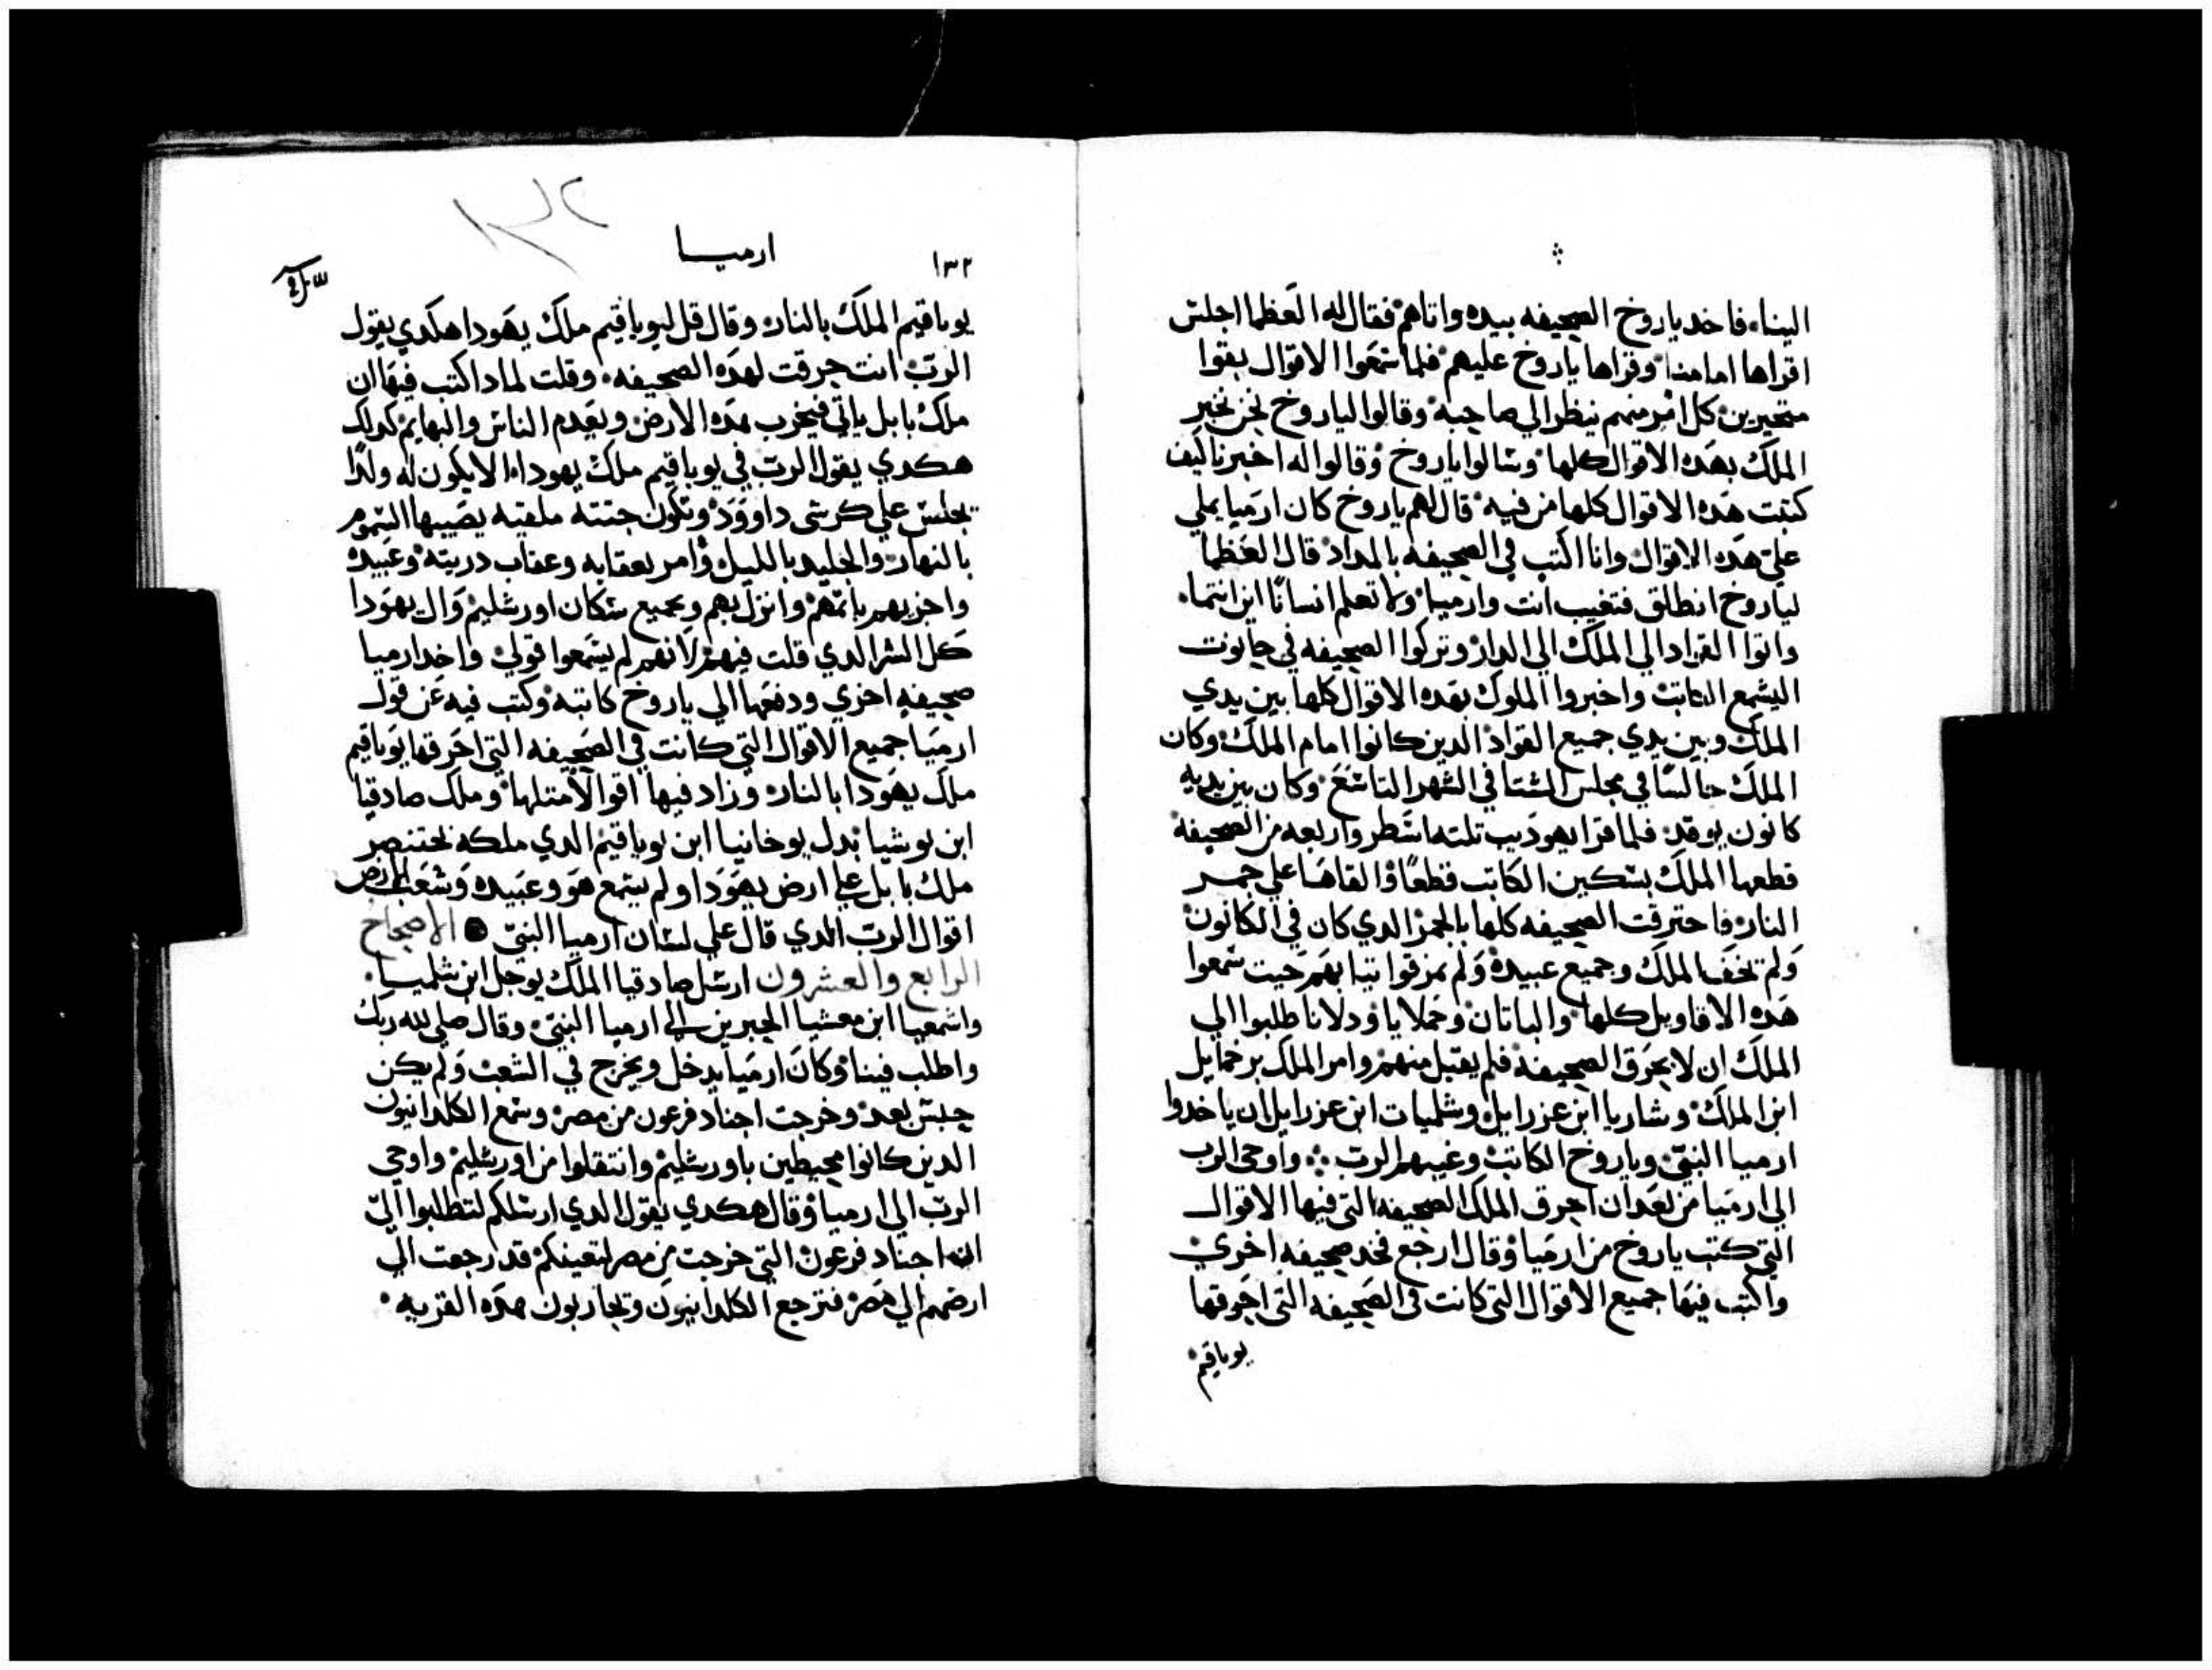 الينا، فاخد ياروخ الصحيفه بيده واتاهم فقال له العظما اجلس
اقراها امامنا وقراها ياروخ عليهم فلما سمعوا الاقوال بقوا
متحيرين كل امر منهم ينظر الي صاحبه وقالوا لياروخ نحن نخبر
الملك بهده الاقوال كلها وسالوا ياروخ وقالوا له اخبرنا كيف
كتبت هده الاقوال كلها من فيه قال لهم ياروخ كان ارميا يملي
علي هده الاقوال وانا اكتب في الصحيفه بالمداد قال العظما
لياروخ انطلق فتغيب انت وارميا ولا تعلم انسانا اين انتما
واتوا القواد الي الملك الي الدار وتركوا الصحيفه في حانوت
اليشمع الكاتب واخبروا الملوك بهده الاقوال كلها بين يدي
الملك وبين يدي جميع القواد الدين كانوا امام الملك وكان
الملك جالسا في مجلس الشتا في الشهر التاسع وكان بين يديه
كانون يوقد فلما قرا يهوديب تلته اشطر واربعه من الصحيفه
قطعها الملك بسكين الكاتب قطعا والقاها علي جمر
النار فاحترقت الصحيفه كلها بالجمر الدي كان في الكانون
ولم يخف الملك وجميع عبيده ولم يمزقوا تيابهم حيت سمعوا
هده الاقاويل كلها والياتان وجملايا ودلانا طلبوا الي
الملك ان لا يحرق الصحيفه فلم يقبل منهم وامر الملك يرحمايل
ابن الملك وشاريا ابن عزرايل وشلميات ابن عزرايل ان ياخدوا
ارميا النبي وياروخ الكاتب وغيبهم الرب واوحي الرب
الي ارميا من بعد ان احرق الملك الصحيفه التي فيها الاقوال
التي كتب ياروخ من ارميا وقال ارجع فخد صحيفه اخري
واكتب فيها جميع الاقوال التي كانت في الصحيفه التي احرقها
يوياقيم
١٣٢
ارميا
١٣٢
يوياقيم الملك بالنار وقال قل ليوياقيم ملك يهودا هكدي يقول
الرب انت حرقت لهده الصحيفه وقلت لمادا كتب فيها ان
ملك بابل ياتي فيخرب هده الارض ويعدم الناس والبهايم كدلك
هكدي يقول الرب في يوياقيم ملك يهودا الا يكون له ولدا
يجلس علي كرسي داوود وتكون جتته ملقيه يصيبها السموم
بالنهار والجليد بالليل وامر بعقابه وعقاب دريته وعبيده
واجزيهم باتمهم وانزل بهم وبجميع سكان اورشليم وال يهودا
كل الشر الدي قلت فيهم لانهم لم يسمعوا قولي واخد ارميا
صحيفه اخري ودفعها الي ياروخ كاتبه وكتب فيه عن قول
ارميا جميع الاقوال التي كانت في الصحيفه التي احرقها يوياقيم
ملك يهودا بالنار وزاد فيها اقوالا متلها وملك صادقيا
ابن يوشيا بدل يوخانيا ابن يوياقيم الدي ملكه بختنصر
ملك بابل علي ارض يهودا ولم يسمع هو وعبيده وشعب الارض
اقوال الرب الدي قال علي لسان ارميا النبي الاصحاح
الرابع والعشرون ارسل صادقيا الملك يوجل ابن شلميا
واشمعيا ابن معشيا الحبرين الي ارميا النبي وقال صلي لله ربك
واطلب فينا وكان ارميا يدخل ويخرج في الشعب ولم يكن
حبس بعد وخرجت اجناد فرعون من مصر وسمع الكلدانيون
الدين كانوا محيطين باورشليم وانتقلوا من اورشليم واوحي
الرب الي ارميا وقال هكدي يقول الدي ارسلكم لتطلبوا الي
انه اجناد فرعون التي خرجت من مصر لتعينكم قد رجعت الي
ارضهم الي مصر فترجع الكلدانيون وتحاربون هده القريه